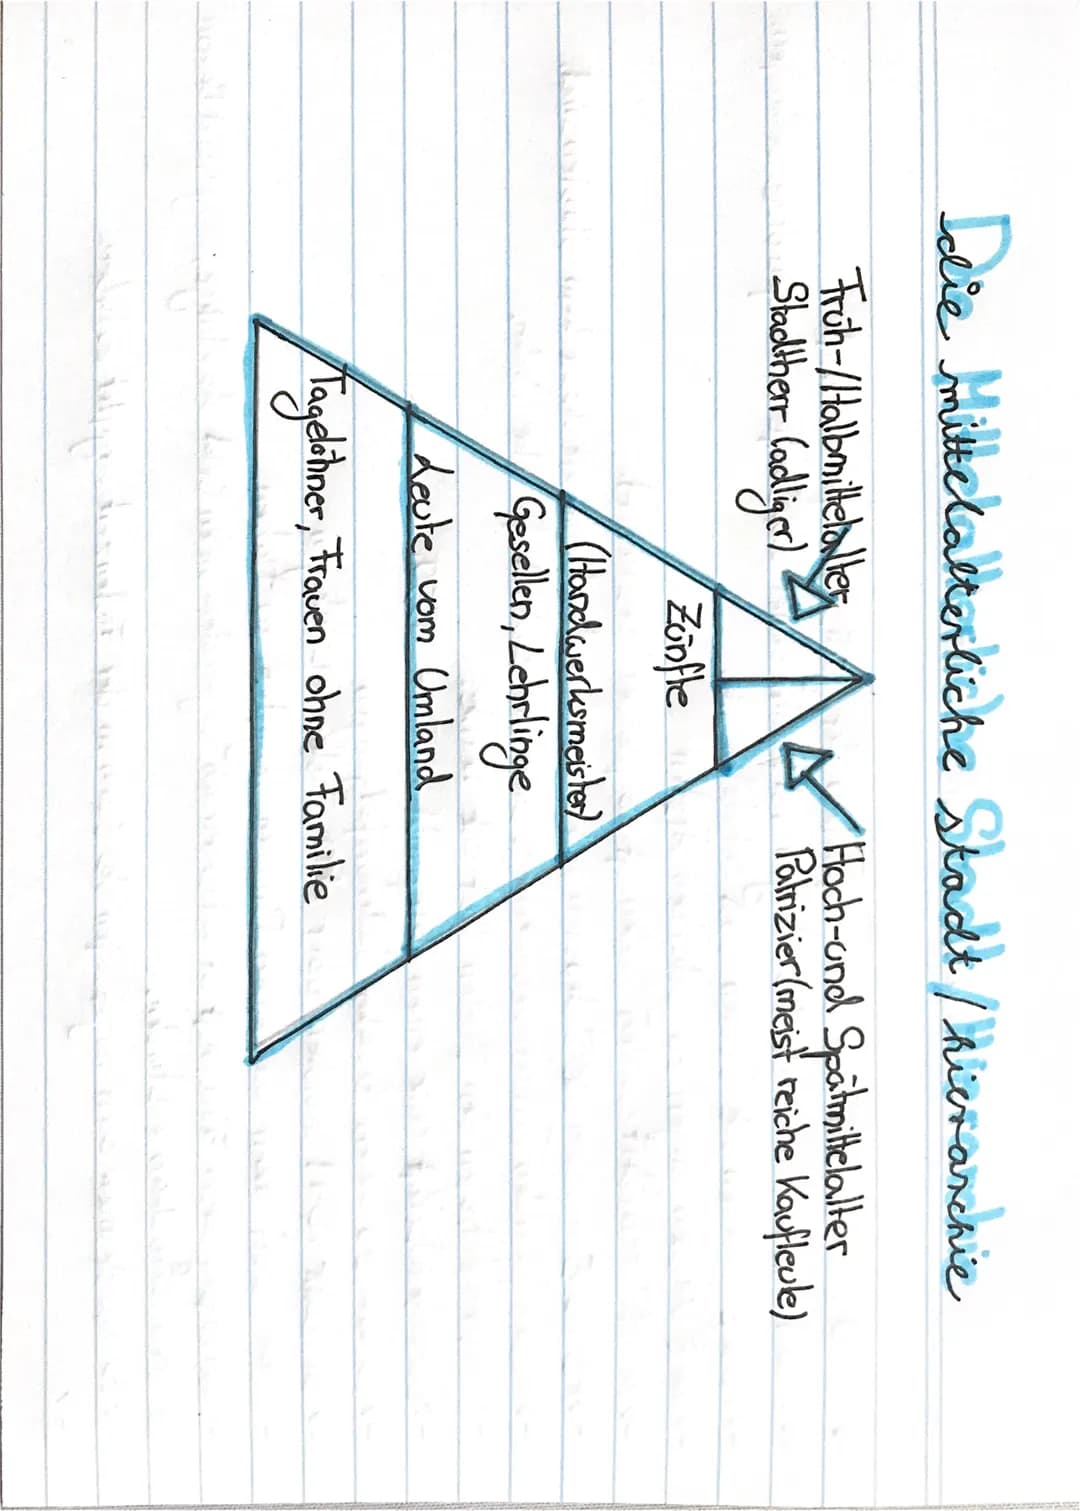 Die mittelalterliche Stadt / hierarchie
Früh-/Halbmittelalter
Stadtherr (adliger)
Hoch-und Spätmittelalter
Patrizier (meist reiche Kaufleute)
Zünfte
(Handwerksmeister)
Gesellen, Lehrlinge
Leute vom Umland
Tagelöhner, Frauen ohne Familie